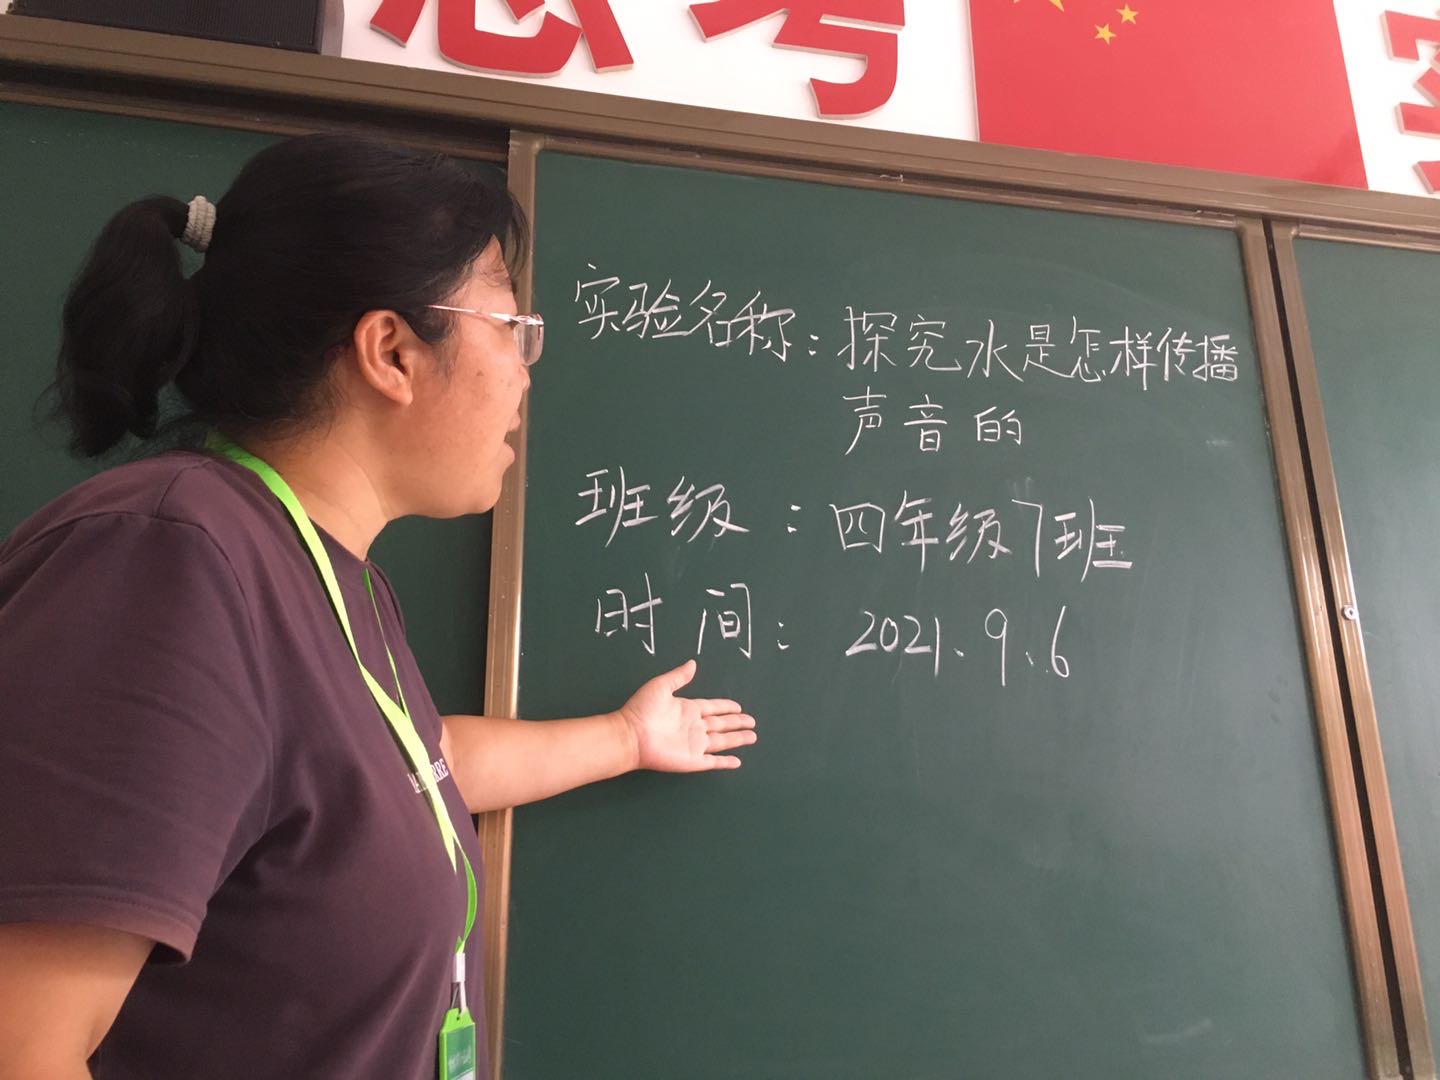 思考
实验名称：探究水是怎样传播
声音的
班级：四年级7班
时间：2021.9.6